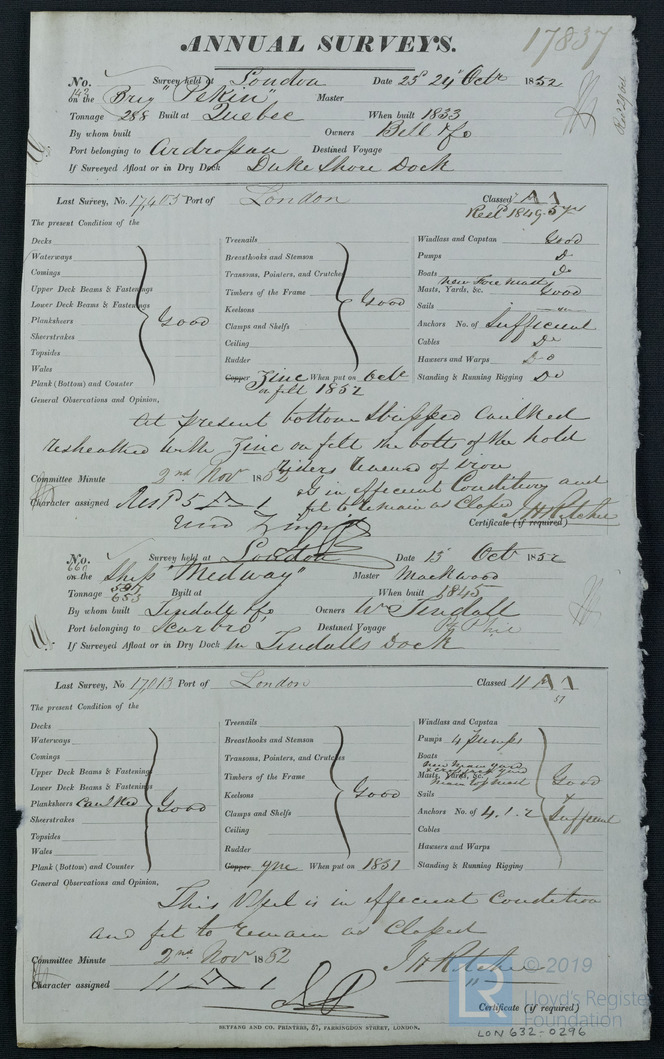 17837
ANNUAL SURVEYS.
No. 143 Survey held at London Date 25 29 Octr 1852
on the Brig "Pekin" Master
Tonnage 288 Built at Quebec When built 1833
By whom built Owners Bell & Co
Port belonging to Ardrossan Destined Voyage
If Surveyed Afloat or in Dry Dock Duke Shore Dock
Last Survey, No. 17,403 Port of London Classed A 1
Restd 1849. 5 yrs
The present Condition of the
Decks
Waterways
Comings
Upper Deck Beams & Fastenings
Lower Deck Beams & Fastenings
Planksheers
Sheerstrakes
Topsides
Wales
Plank (Bottom) and Counter
Good
Treenails
Breasthooks and Stemson
Transoms, Pointers, and Crutches
Timbers of the Frame
Keelsons
Clamps and Shelfs
Ceiling
Rudder
Good
Copper Zinc When put on Octr
on felt 1852
Windlass and Capstan Good
Pumps Do
Boats Do
New Fore Mast
Masts, Yards, &c. Good
Sails
Anchors No. of Sufficient
Cables Do
Hawsers and Warps Do
Standing & Running Rigging Do
General Observations and Opinion,
At present bottom stripped caulked
resheathed with Zinc on felt the bolts of the hold
riders renewed of iron
is in efficient Condition and
fit to remain as Classed
J H Ritchie
Committee Minute 2nd Nov 1852
Character assigned Rest 5 A 1
Certificate (if required)
No. 660 Survey held at London Date 15 Octr 1852
on the Ship "Medway" Master Mackwood
Tonnage 653 Built at When built 1845
By whom built Tindall & Co Owners Wm Tindall
Port belonging to Scarbro Destined Voyage
If Surveyed Afloat or in Dry Dock in Tindalls Dock
Last Survey, No 17,013 Port of London Classed 11 A 1
51
The present Condition of the
Decks
Waterways
Comings
Upper Deck Beams & Fastenings
Lower Deck Beams & Fastenings
Planksheers Caulked
Sheerstrakes
Topsides
Wales
Plank (Bottom) and Counter
Good
Treenails
Breasthooks and Stemson
Transoms, Pointers, and Crutches
Timbers of the Frame
Keelsons
Clamps and Shelfs
Ceiling
Rudder
Good
Copper YM When put on 1851
Windlass and Capstan
Pumps 4 Pumps
Boats
new main yard
Masts, Yards, &c.
main top mast
Sails
Anchors No. of 4.1.2
Cables
Hawsers and Warps
Standing & Running Rigging
Good
&
Sufficient
General Observations and Opinion,
This Vessel is in efficient Condition
and fit to remain as Classed
J H Ritchie
Committee Minute 2nd Nov 1852
Character assigned 11 A 1
Certificate (if required)
SEYFANG AND CO. PRINTERS, 57, FARRINGDON STREET, LONDON.
LR © 2019
Lloyd's Register
Foundation
LON 632-0296